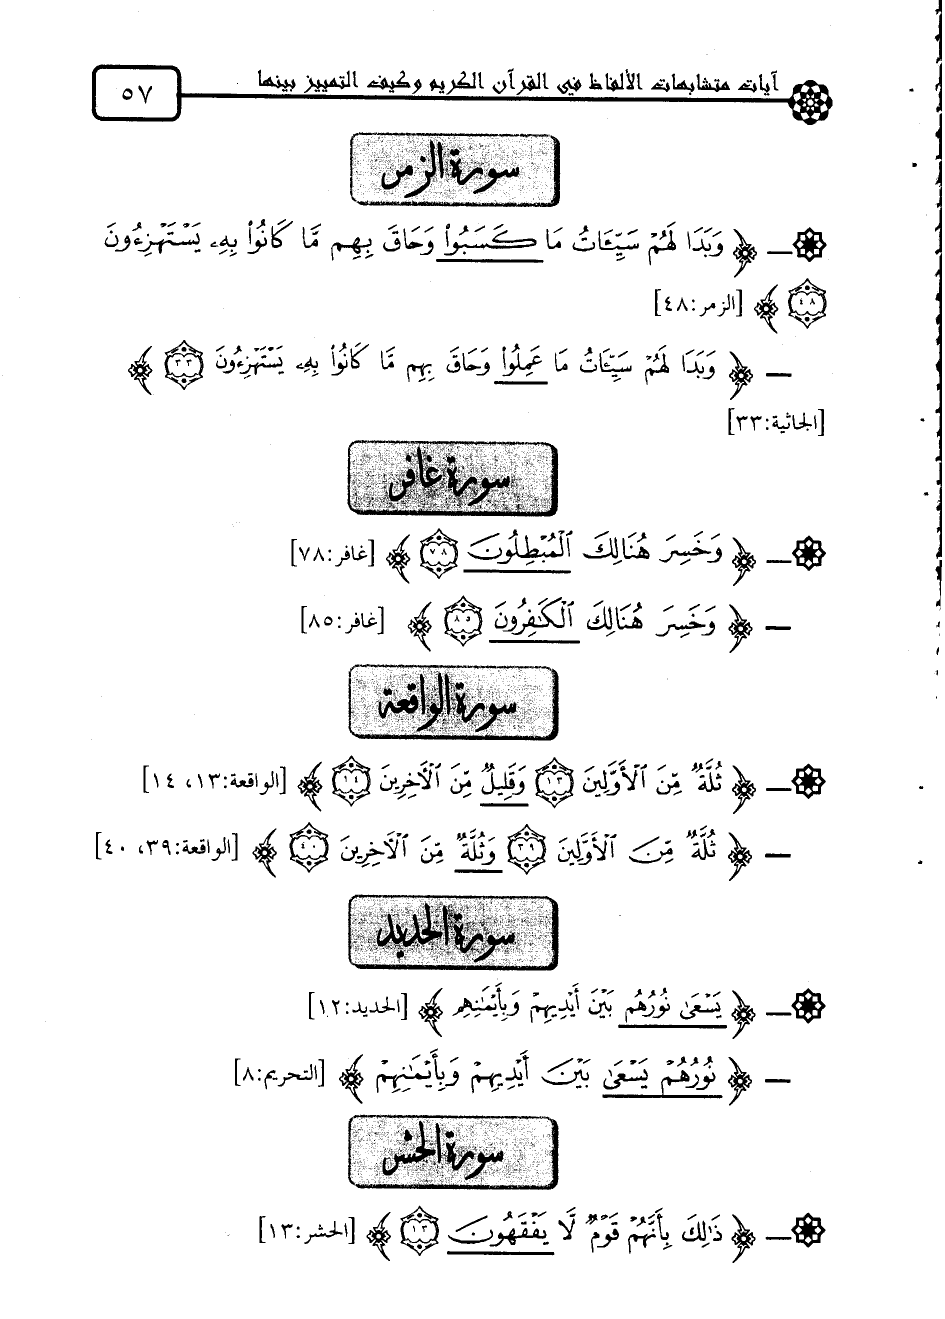 آيات متشابهات الألفاظ في القرآن الكريم وكيف التمييز بينها
٥٧
سورة الزمر
— ﴿ وَبَدَا لَهُمْ سَيِّـَٔاتُ مَا كَسَبُوا۟ وَحَاقَ بِهِم مَّا كَانُوا۟ بِهِۦ يَسْتَهْزِءُونَ
٤٨ ﴾ [الزمر:٤٨]
— ﴿ وَبَدَا لَهُمْ سَيِّـَٔاتُ مَا عَمِلُوا۟ وَحَاقَ بِهِم مَّا كَانُوا۟ بِهِۦ يَسْتَهْزِءُونَ ٣٣ ﴾
[الجاثية:٣٣]
سورة غافر
— ﴿ وَخَسِرَ هُنَالِكَ ٱلْمُبْطِلُونَ ٧٨ ﴾ [غافر:٧٨]
— ﴿ وَخَسِرَ هُنَالِكَ ٱلْكَـٰفِرُونَ ٨٥ ﴾ [غافر:٨٥]
سورة الواقعة
— ﴿ ثُلَّةٌ مِّنَ ٱلْأَوَّلِينَ ١٣ وَقَلِيلٌ مِّنَ ٱلْـَٔاخِرِينَ ١٤ ﴾ [الواقعة:١٣، ١٤]
— ﴿ ثُلَّةٌ مِّنَ ٱلْأَوَّلِينَ ٣٩ وَثُلَّةٌ مِّنَ ٱلْـَٔاخِرِينَ ٤٠ ﴾ [الواقعة:٣٩، ٤٠]
سورة الحديد
— ﴿ يَسْعَىٰ نُورُهُم بَيْنَ أَيْدِيهِمْ وَبِأَيْمَـٰنِهِم ﴾ [الحديد:١٢]
— ﴿ نُورُهُمْ يَسْعَىٰ بَيْنَ أَيْدِيهِمْ وَبِأَيْمَـٰنِهِمْ ﴾ [التحريم:٨]
سورة الحشر
— ﴿ ذَٰلِكَ بِأَنَّهُمْ قَوْمٌ لَّا يَفْقَهُونَ ١٣ ﴾ [الحشر:١٣]